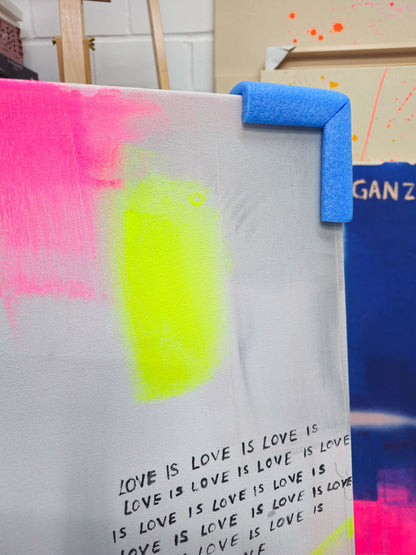 GANZ
LOVE IS LOVE IS LOVE IS
LOVE IS LOVE IS LOVE IS LOVE
IS LOVE IS LOVE IS LOVE IS
LOVE IS LOVE IS LOVE IS LOVE
LOVE IS LOVE IS
LOVE